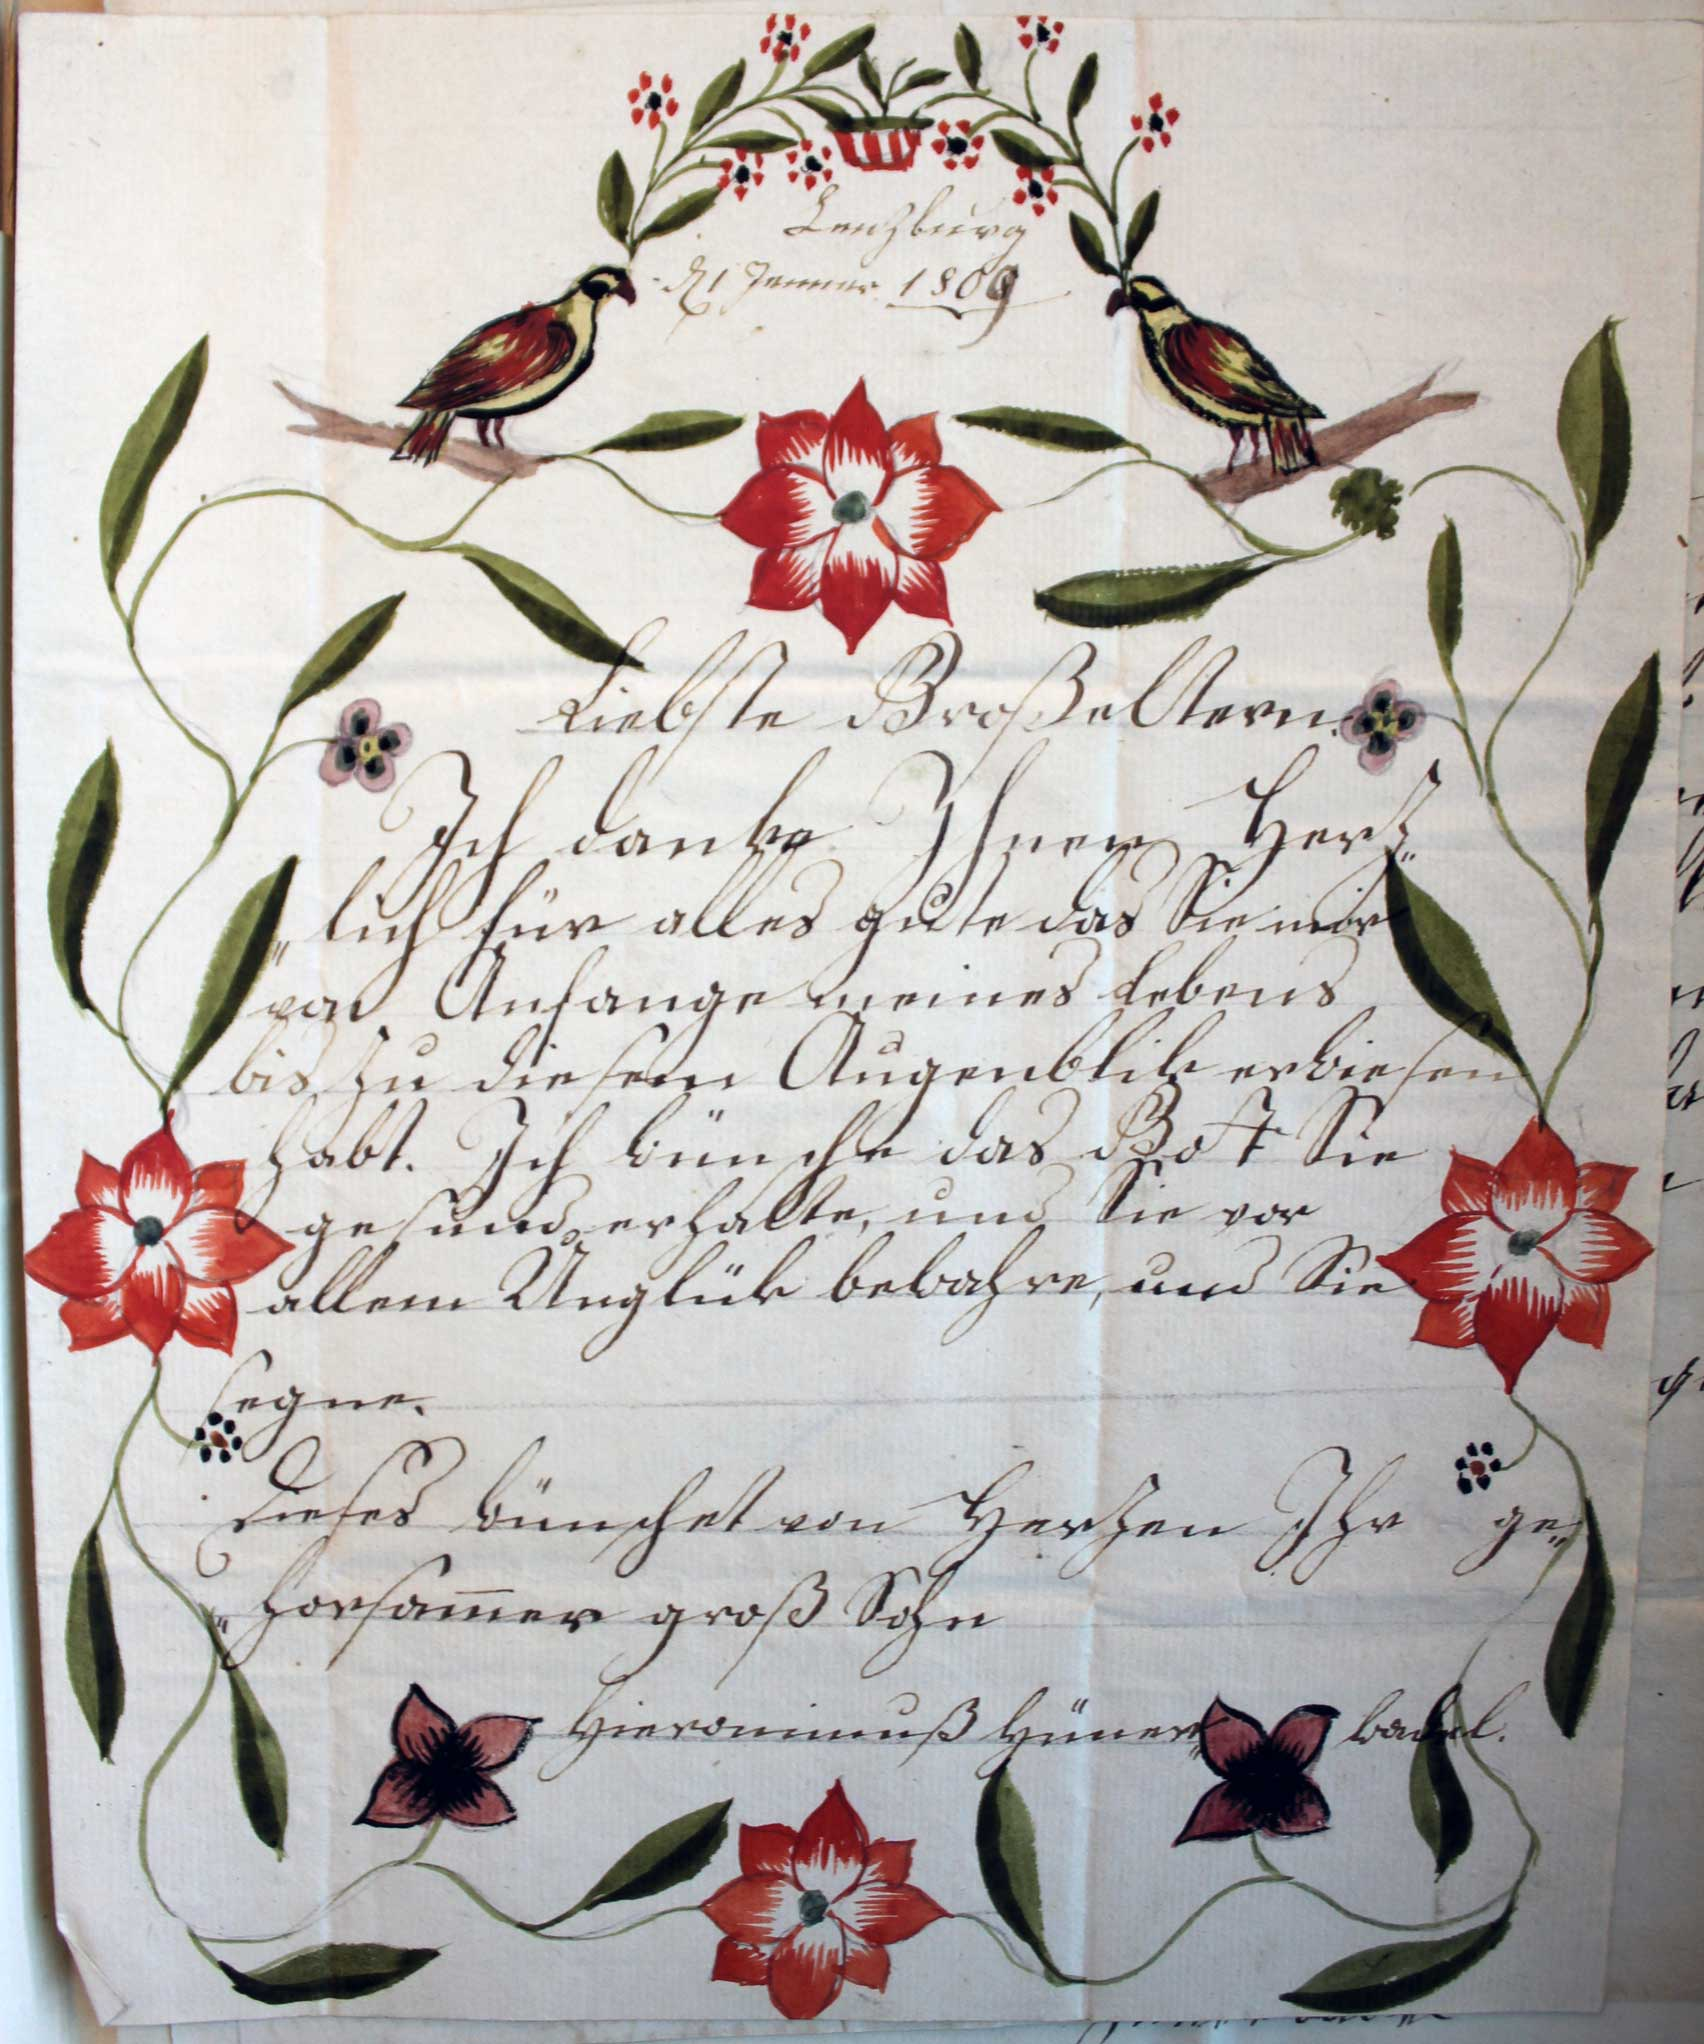 Lenzburg
d. 1 Jenner 1809
Liebste Großeltern.
Ich danke Ihnen Herz„
„lich für alles gute das Sie mir
von Anfange meines Lebens
bis zu diesem Augenblik erwiesen
habt. Ich wünsche das Gott Sie
gesund erhalte, und Sie vor
allem Unglük bewahre, und Sie
segne.
Dieses wünschet von Herzen Ihr ge„
„horsam̅er groß Sohn
Hieronimuß Hüner„ wadel.